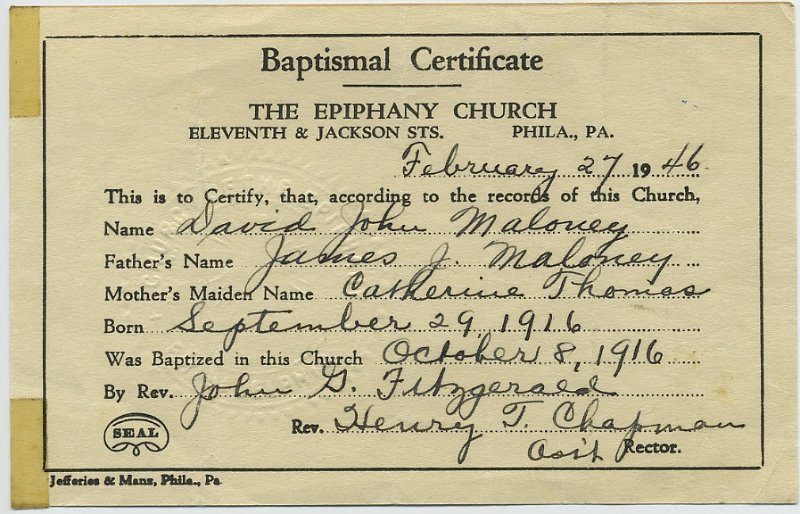 Baptismal Certificate
THE EPIPHANY CHURCH
ELEVENTH & JACKSON STS. PHILA., PA.
February 27 1946
This is to Certify, that, according to the records of this Church,
Name David John Maloney
Father's Name James J. Maloney
Mother's Maiden Name Catherine Thomas
Born September 29, 1916
Was Baptized in this Church October 8, 1916
By Rev. John G. Fitzgerald
SEAL
Rev. Henry T. Chapman
Ass't Rector.
Jefferies & Manz, Phila., Pa.